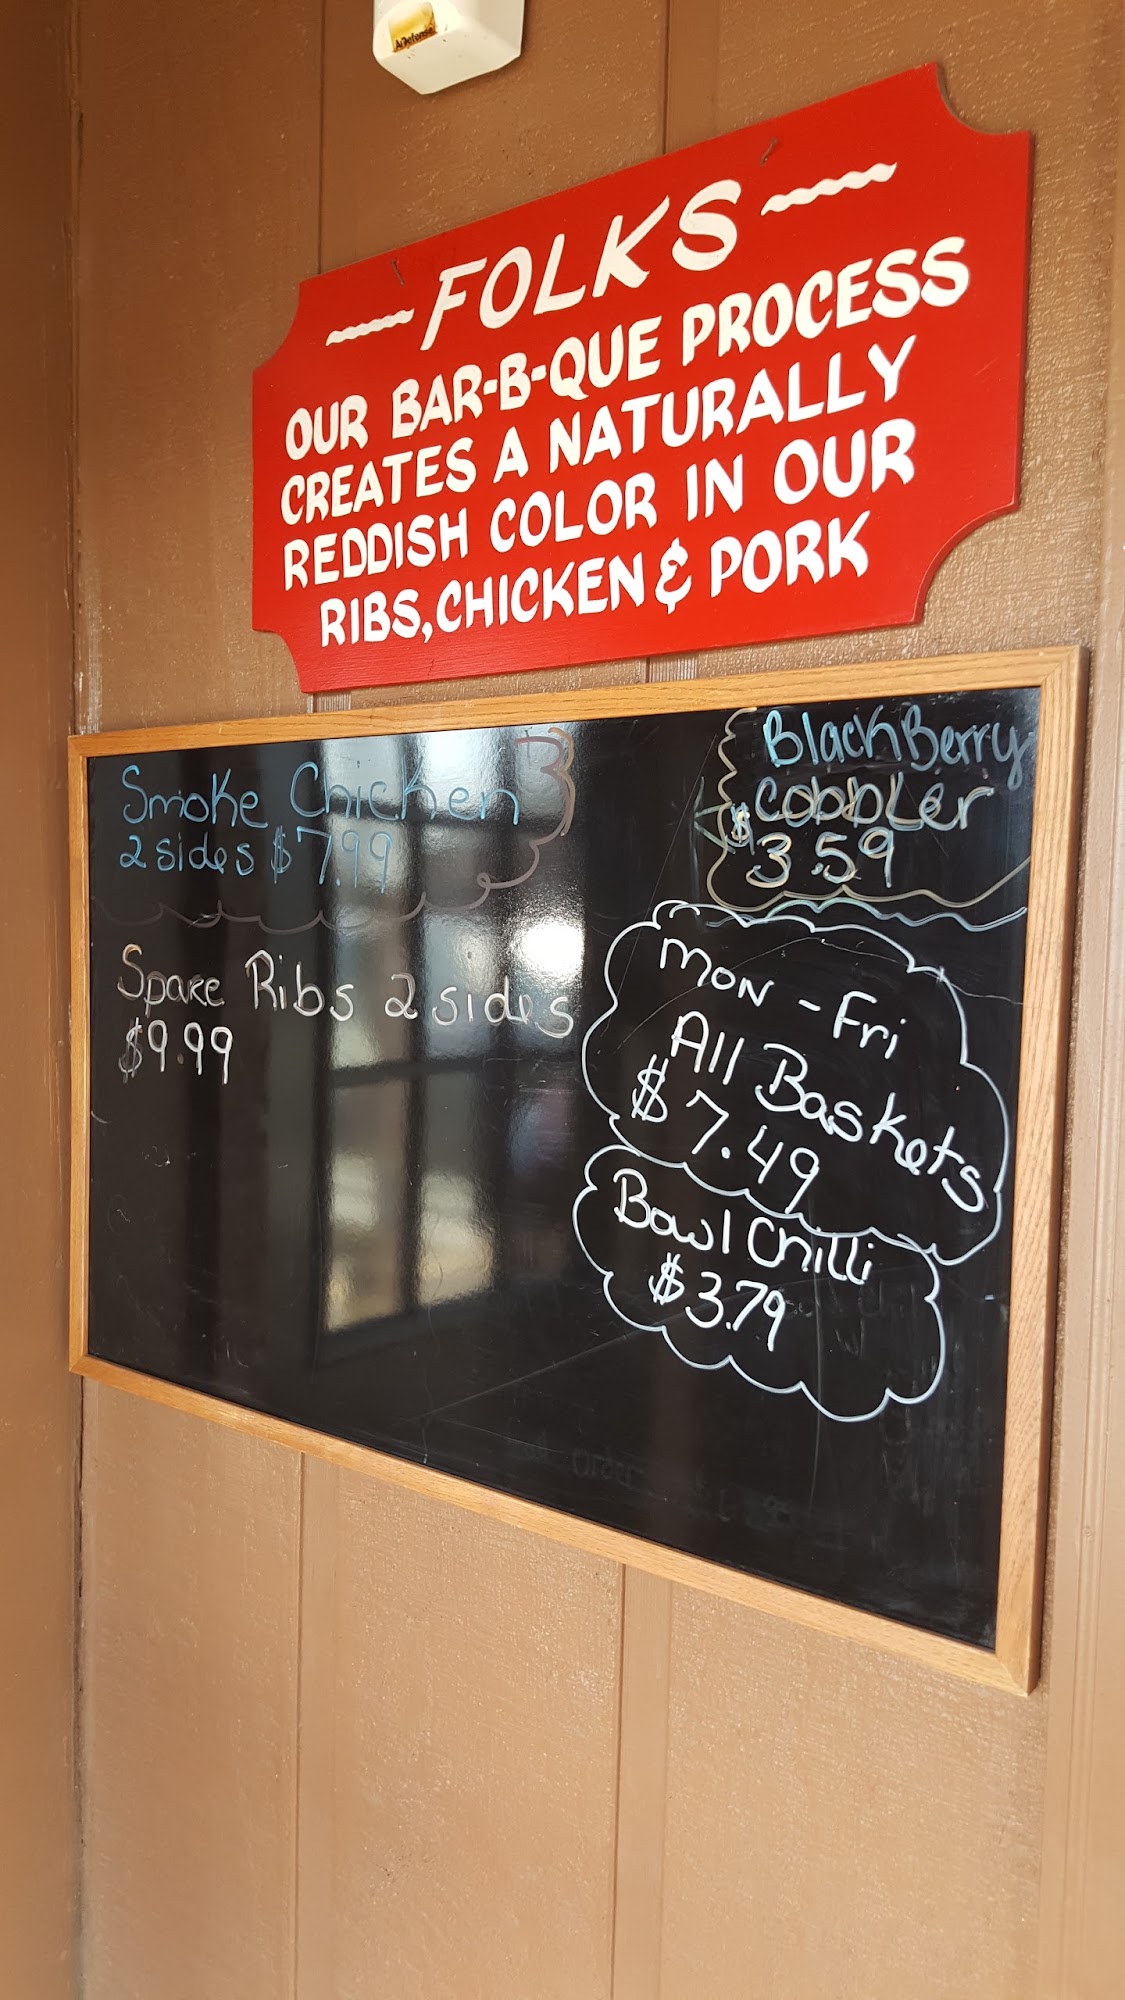 FOLKS
OUR BAR-B-QUE PROCESS
CREATES A NATURALLY
REDDISH COLOR IN OUR
RIBS, CHICKEN & PORK
Smoke Chicken
2 sides $7.99
Spare Ribs 2 sides
$9.99
BlackBerry
Cobbler
$3.59
Mon - Fri
All Baskets
$7.49
Bowl Chilli
$3.79